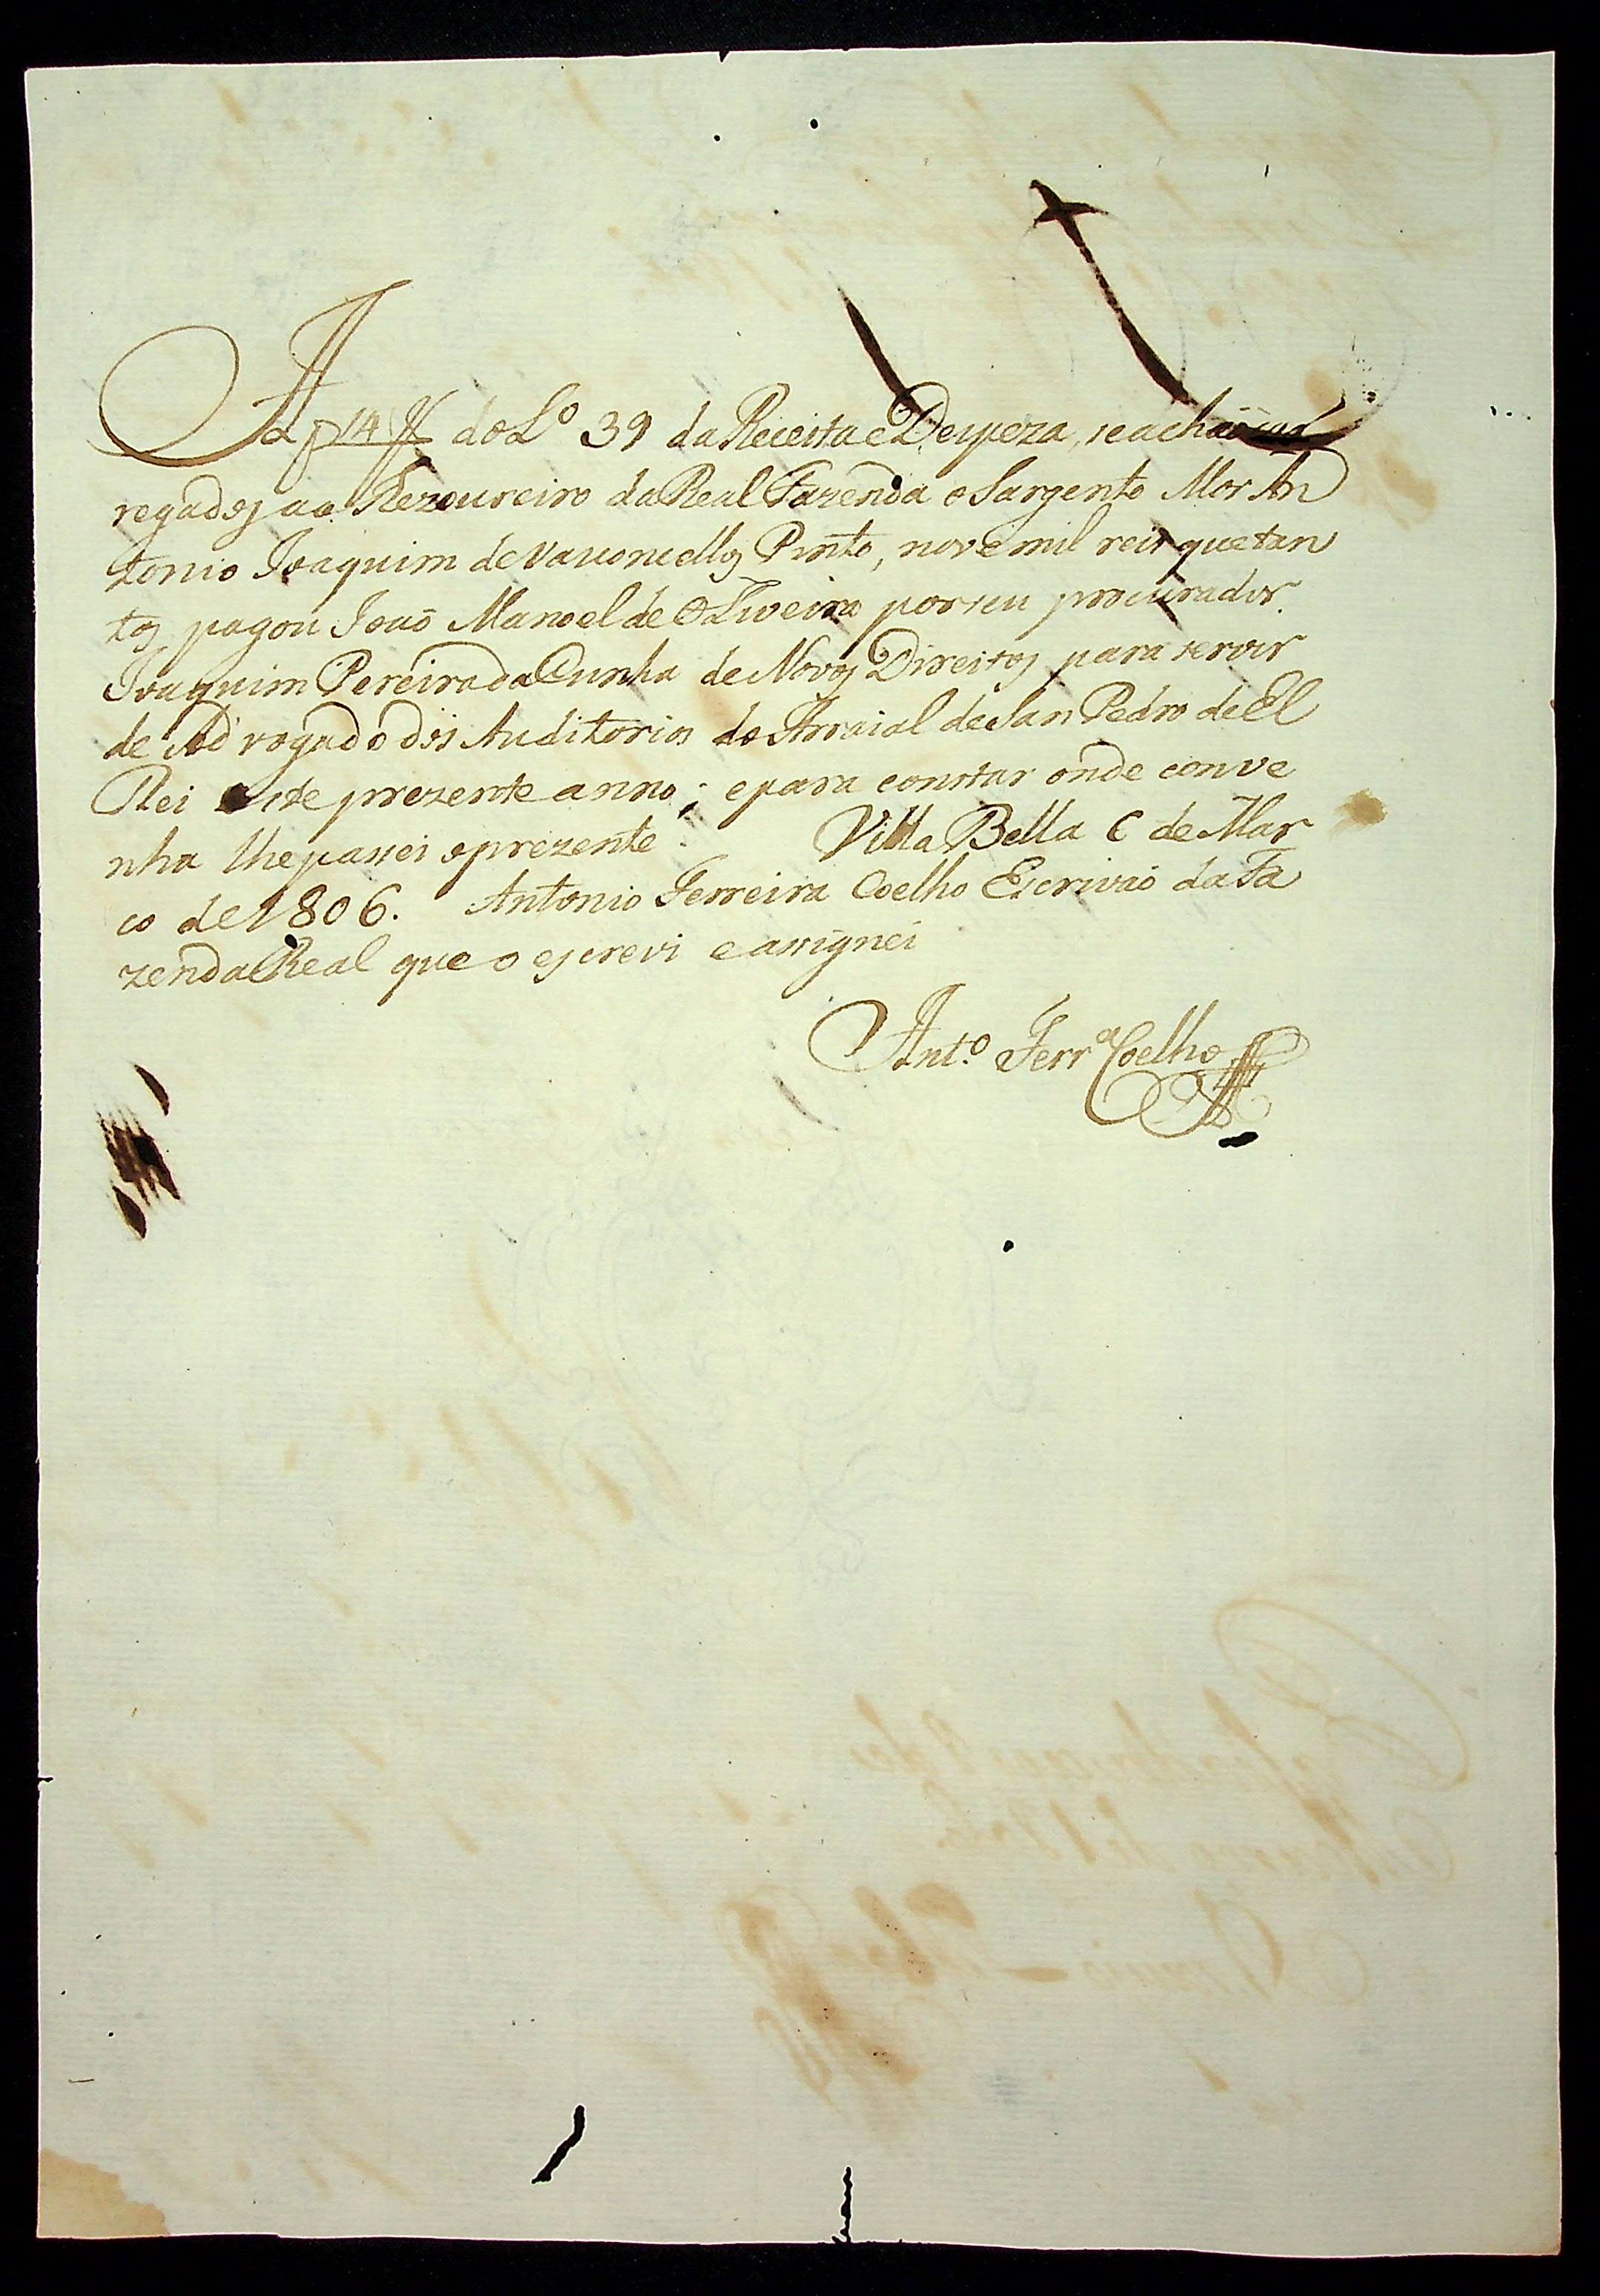 A f 14 do L.º 39 da Receita e Despeza, se achaõ car
regados ao Thezoureiro da Real Fazenda o Sargento Mor An
tonio Joaquim de Vasconcellos Pinto, nove mil reis que tan
tos pagou Joaõ Manoel de OLiveira por seu procurador
Joaquim Pereira da Cunha de Novos Direitos para servir
de Advogado dos Auditorios do Arraial de San Pedro de El
Rei este prezente anno; e para constar onde conve
nha lhe passei o prezente. Villa Bella 6 de Mar
co de 1806. Antonio Ferreira Coelho Escrivaõ da Fa
zenda Real que o escrevi e assignei
Ant.º Ferrª Coelho